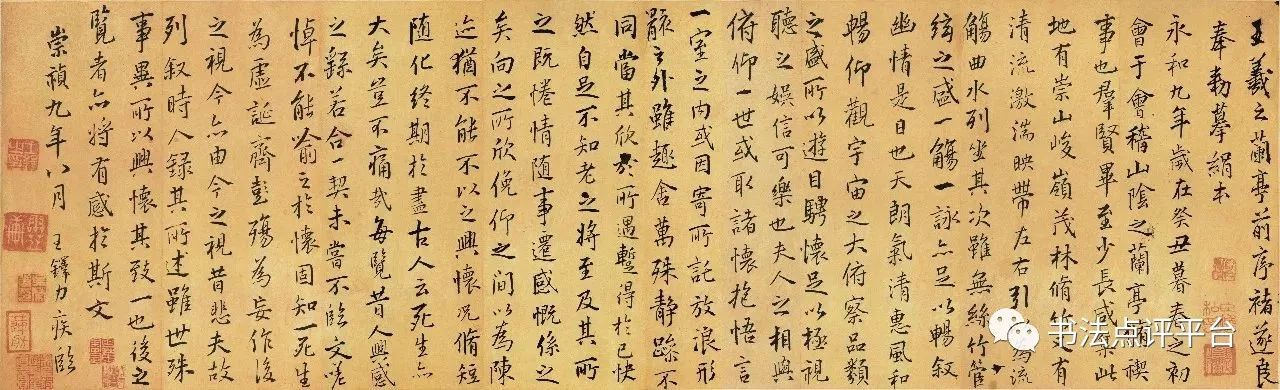 王羲之蘭亭前序褚遂良
奉勅摹絹本
永和九年歲在癸丑暮春之初
會于會稽山陰之蘭亭脩禊
事也羣賢畢至少長咸集此
地有崇山峻嶺茂林脩竹又有
清流激湍映帶左右引為流
觴曲水列坐其次雖無絲竹管
絃之盛一觴一詠亦足以暢叙
幽情是日也天朗氣清惠風和
暢仰觀宇宙之大俯察品類
之盛所以遊目騁懷足以極視
聽之娛信可樂也夫人之相與
俯仰一世或取諸懷抱悟言
一室之内或因寄所託放浪形
骸之外雖趣舍萬殊静躁不
同當其欣於所遇蹔得於己快
然自足不知老之將至及其所
之既惓情随事遷感慨係之
矣向之所欣俛仰之間以為陳
迹猶不能不以之興懷況脩短
随化終期於盡古人云死生亦
大矣豈不痛哉每覽昔人興感
之繇若合一契未嘗不臨文嗟
悼不能喻之於懷固知一死生
為虛誕齊彭殤為妄作後
之視今亦由今之視昔悲夫故
列叙時人録其所述雖世殊
事異所以興懷其致一也後之
覽者亦將有感於斯文
崇禎九年八月 王鐸力疾臨
书法点评平台